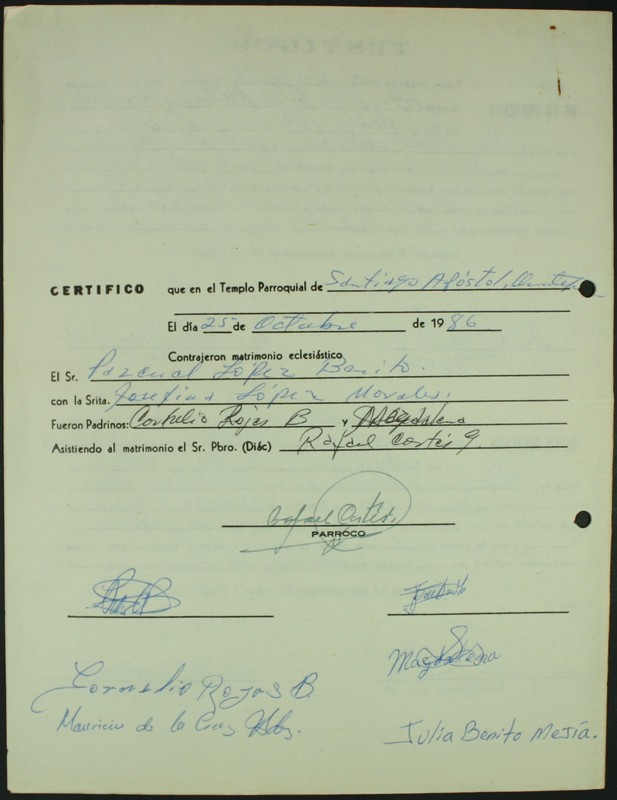 CERTIFICO que en el Templo Parroquial de Santiago Apóstol,
El día 25 de Octubre de 1986
Contrajeron matrimonio eclesiástico
El Sr. Pascual López Benito.
con la Srita. Josefina López Morales.
Fueron Padrinos: Cornelio Rojas B y Magdalena
Asistiendo al matrimonio el Sr. Pbro. (Diác) Rafael Cortés g.
Rafael Cortés
PARROCO
Magdalena
Cornelio Rojas B.
Mauricio de la Cruz
Julia Benito Mejía.